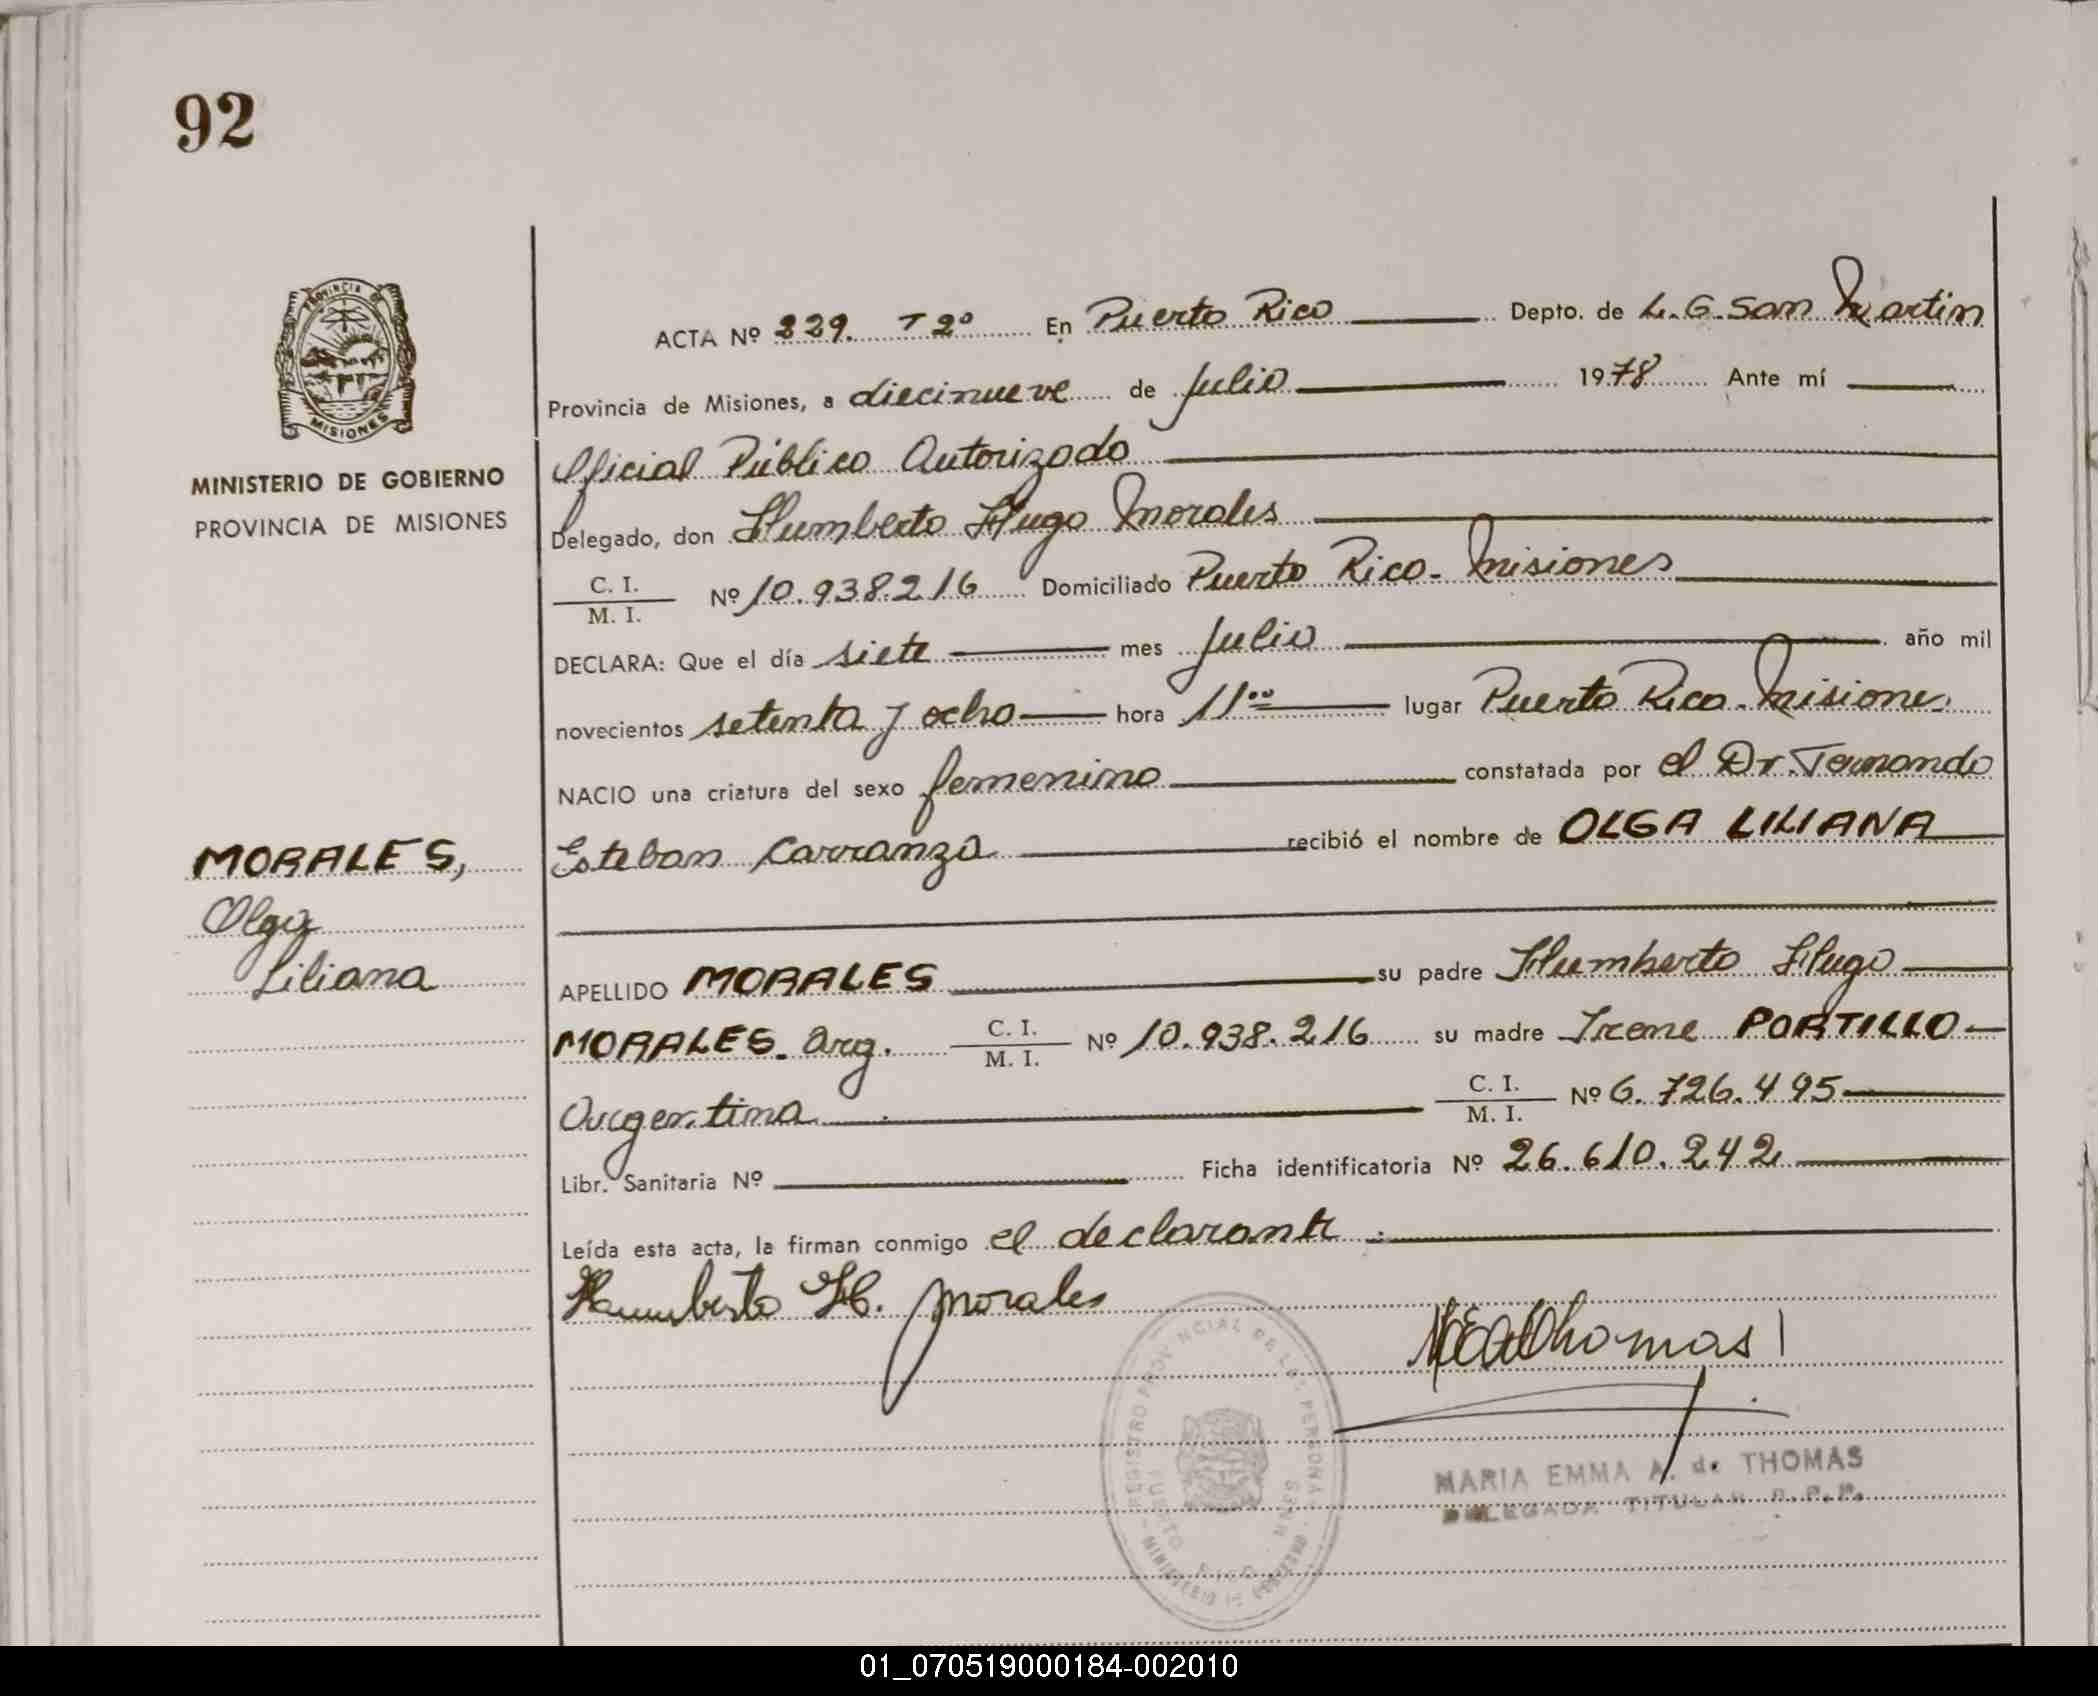 92
PROVINCIA DE
MISIONES
MINISTERIO DE GOBIERNO
PROVINCIA DE MISIONES
ACTA Nº 229. T 2º En Puerto Rico Depto. de L.G. San Martin
Provincia de Misiones, a diecinueve de Julio 1978 Ante mí
Oficial Público Autorizado
Delegado, don Humberto Hugo Morales
C. I.
M. I. Nº 10.938.216 Domiciliado Puerto Rico - Misiones
DECLARA: Que el día siete mes Julio año mil
novecientos setenta y ocho hora 11⁰⁰ lugar Puerto Rico - Misiones.
NACIO una criatura del sexo femenino constatada por el Dr. Fernando
Esteban Carranza recibió el nombre de OLGA LILIANA
MORALES,
Olga
Liliana
APELLIDO MORALES su padre Humberto Hugo
MORALES. Arg. C. I. M. I. Nº 10.938.216 su madre Irene PORTILLO
Argentina C. I. M. I. Nº 6.726.495
Libr. Sanitaria Nº Ficha identificatoria Nº 26.610.242
Leída esta acta, la firman conmigo el declarante.
Humberto H. Morales
MEAdThomas
REGISTRO PROVINCIAL DE LAS PERSONAS
MINISTERIO DE GOBIERNO
PUERTO RICO
MARIA EMMA A. de THOMAS
DELEGADA TITULAR R.P.P.
01_070519000184-002010